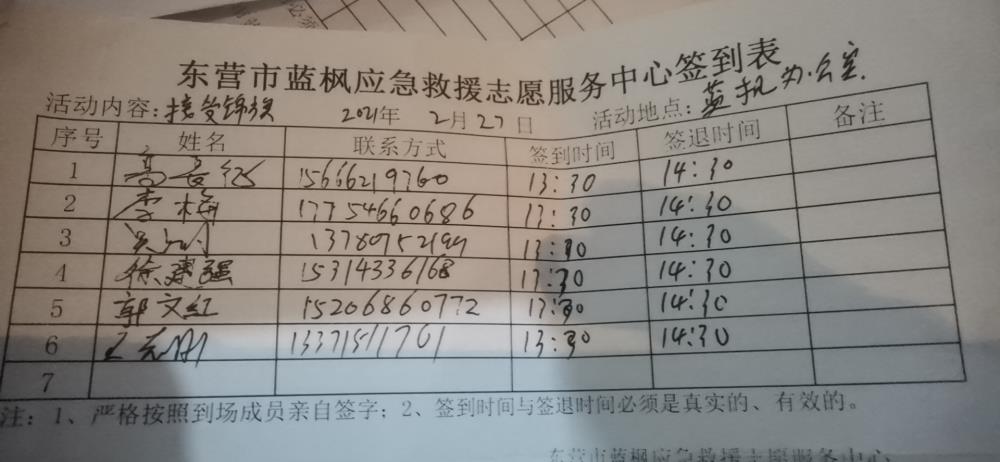 东营市蓝枫应急救援志愿服务中心签到表
活动内容:接受锦旗 2021年 2月27日 活动地点:蓝枫办公室
序号 姓名 联系方式 签到时间 签退时间 备注
1 高长红 15666219760 13:30 14:30
2 李梅 17754660686 13:30 14:30
3 13:30 14:30
4 徐建强 15314336168 13:30 14:30
5 郭文红 15206860772 13:30 14:30
6 13371511761 13:30 14:30
7
注:1、严格按照到场成员亲自签字;2、签到时间与签退时间必须是真实的、有效的。
东营市蓝枫应急救援志愿服务中心